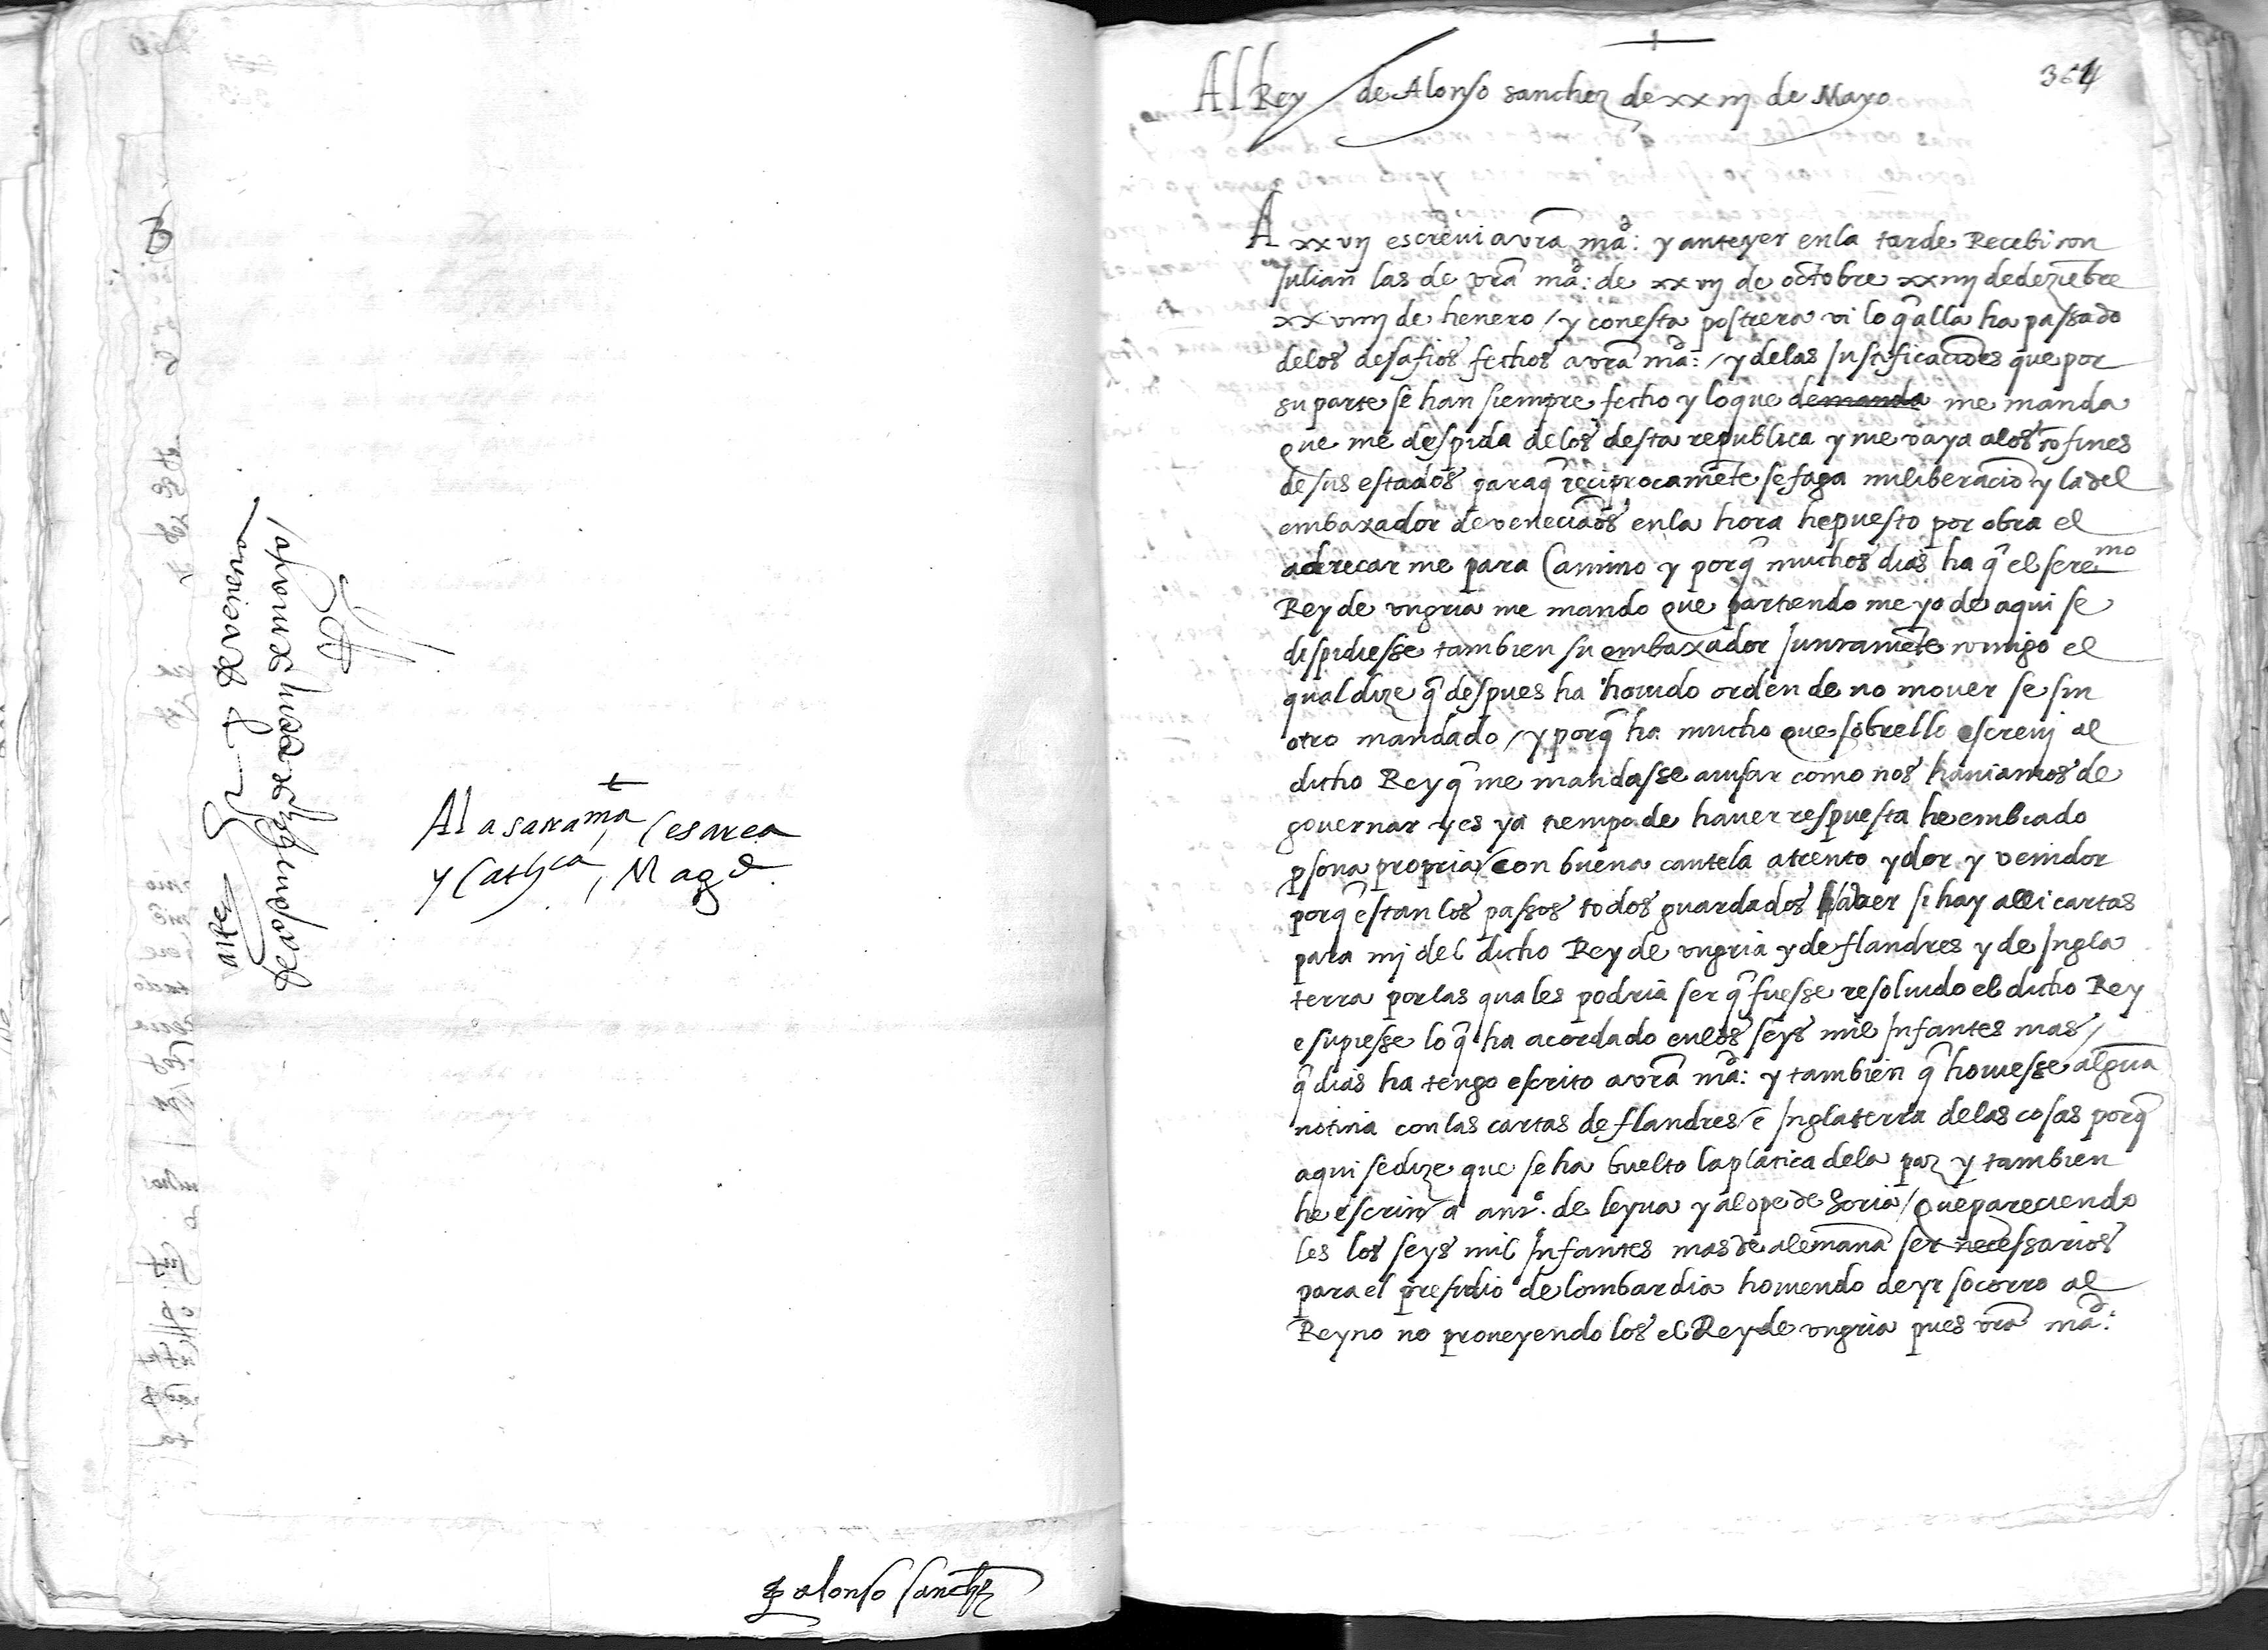 Al a sacra ma, Cesarea
y Cathca, Magd.
alonso sanchz
364
Al Rey de Alonso sanchez de xx iij de Mayo
A xx vij escreui a vra mad: y anteyer en la tarde Recebi con
Julian las de vra mad: de xx vij de octobre xx iiij de deziebre
xx viiij de henero / y con esta postrera vi lo q alla ha passado
de los desafios fechos a vra mad: / y de las Justificaciões que por
su parte se han siempre fecho y lo que demanda me manda
que me despida de los desta republica y me vaya a los cõfines
de sus estados para q reciprocamẽte se faga mi liberacio y la del
embaxador de venecianos en la hora he puesto por obra el
aderecar me para Camino y porq muchos dias ha q el seremo
Rey de vngria me mando que partiendo me yo de aqui se
dispidiesse tambien su embaxador Juntamẽte comigo el
qual dize q despues ha hauido orden de no mouer se sin
otro mandado / y porq ha mucho que sobrello escreuj al
dicho Rey q me mandasse auisar como nos hauiamos de
gouernar y es ya tiempo de hauer respuesta he embiado
psona propria con buena cautela a trento ydor y venidor
porq estan los passos todos guardados haber si hay alli cartas
para mj del dicho Rey de vngria y de flandres y de Ingla
terra por las quales podria ser q fuesse resoluido el dicho Rey
e supiesse lo q ha acordado en los seys mil Infantes mas /
q dias ha tengo escrito a vra mad: y tambien q houiesse algua
noticia con las cartas de flandres e Inglaterra de las cosas porq
aqui se dize que se ha buelto la platica de la paz y tambien
he escrito a anto. de leyua y a lope de Soria / que pareciendo
les los seys mil Infantes mas de alemana ser necessarios
para el presidio de lombardia houiendo de yr socorro al
Reyno no proueyendo los el Rey de vngria pues vra mad: